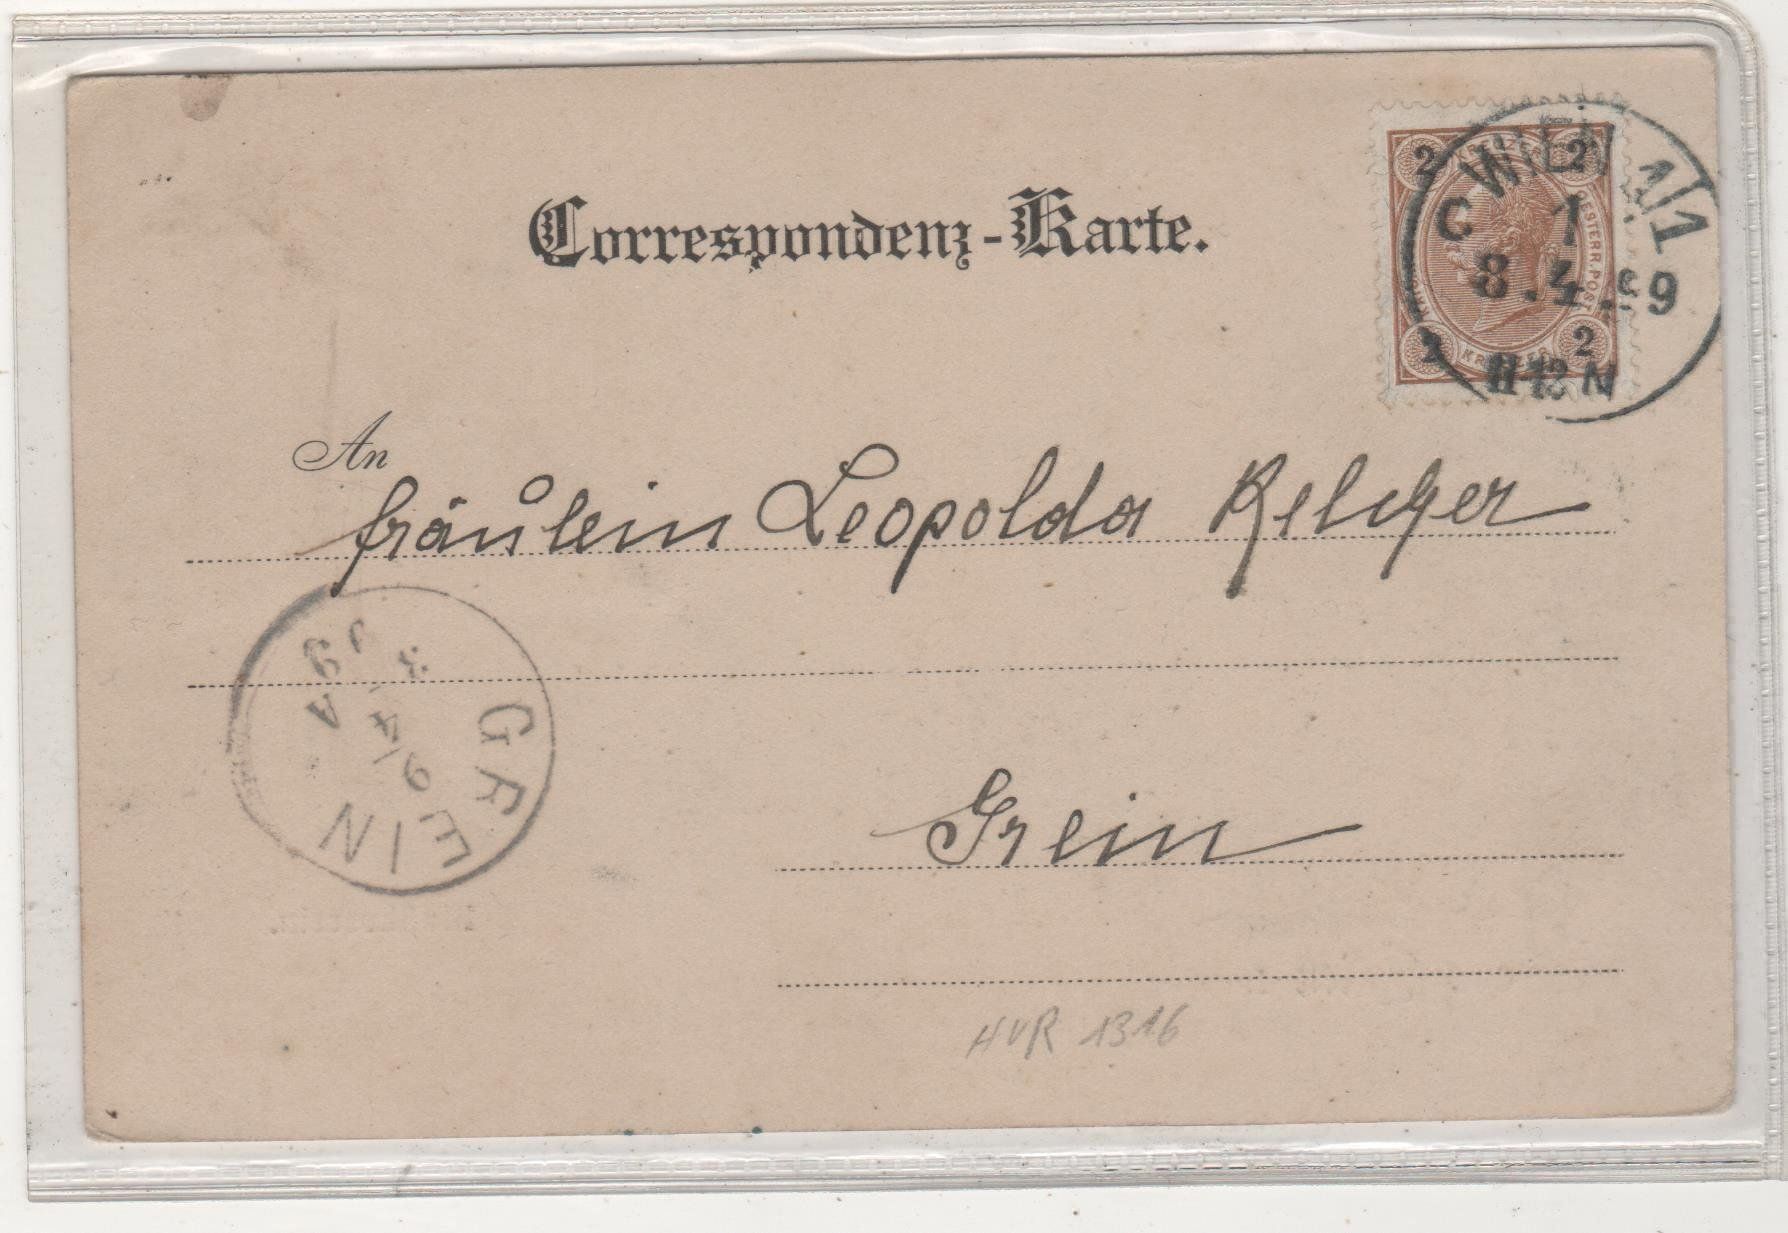 Correspondenz-Karte.
2 KREUZER 2
OESTERR. POST
2 KREUZER 2
WIEN 1/1
C 1
8.4.99
N
An
fräulein Leopolda Kelcher
GREIN
9/4
Grein
HVR 1316